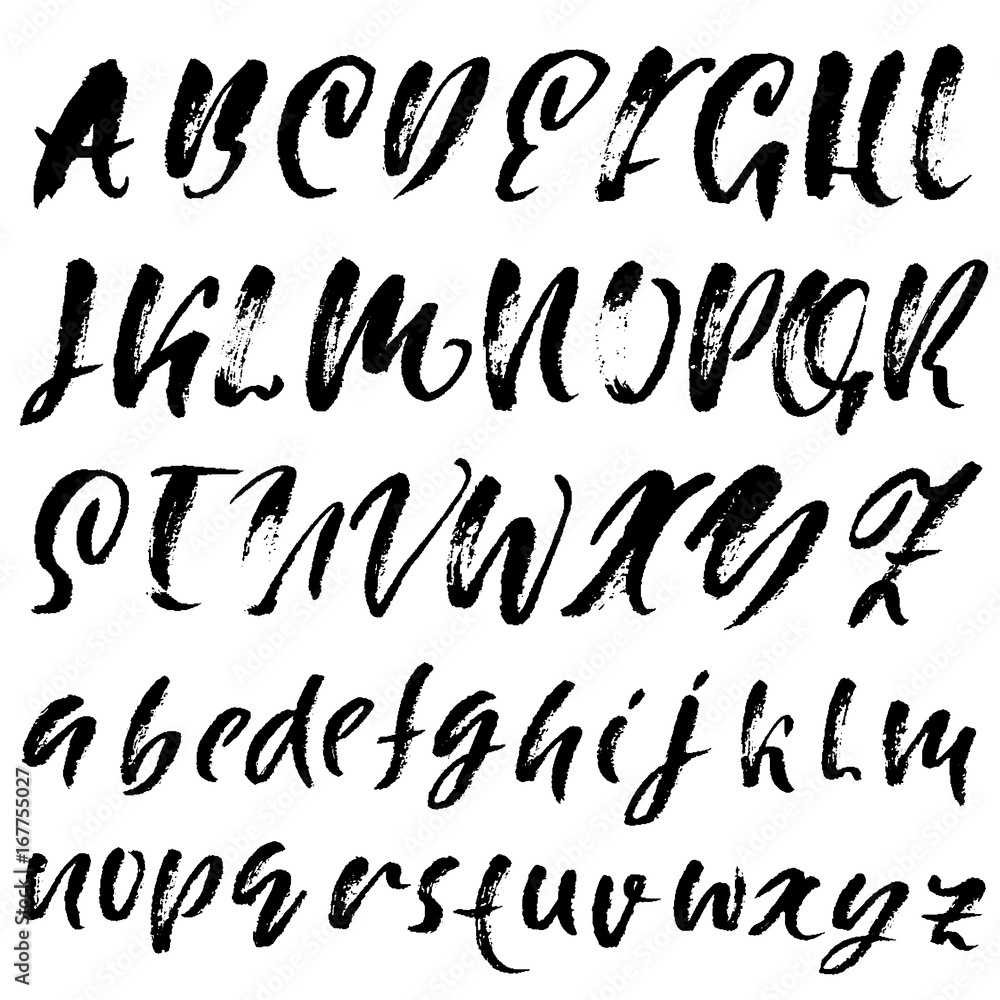 ABCDEFGHI
JKLMNOPQR
STUVWXYZ
abcdefghijklm
nopqrstuvwxyz
Adobe Stock | #167755027